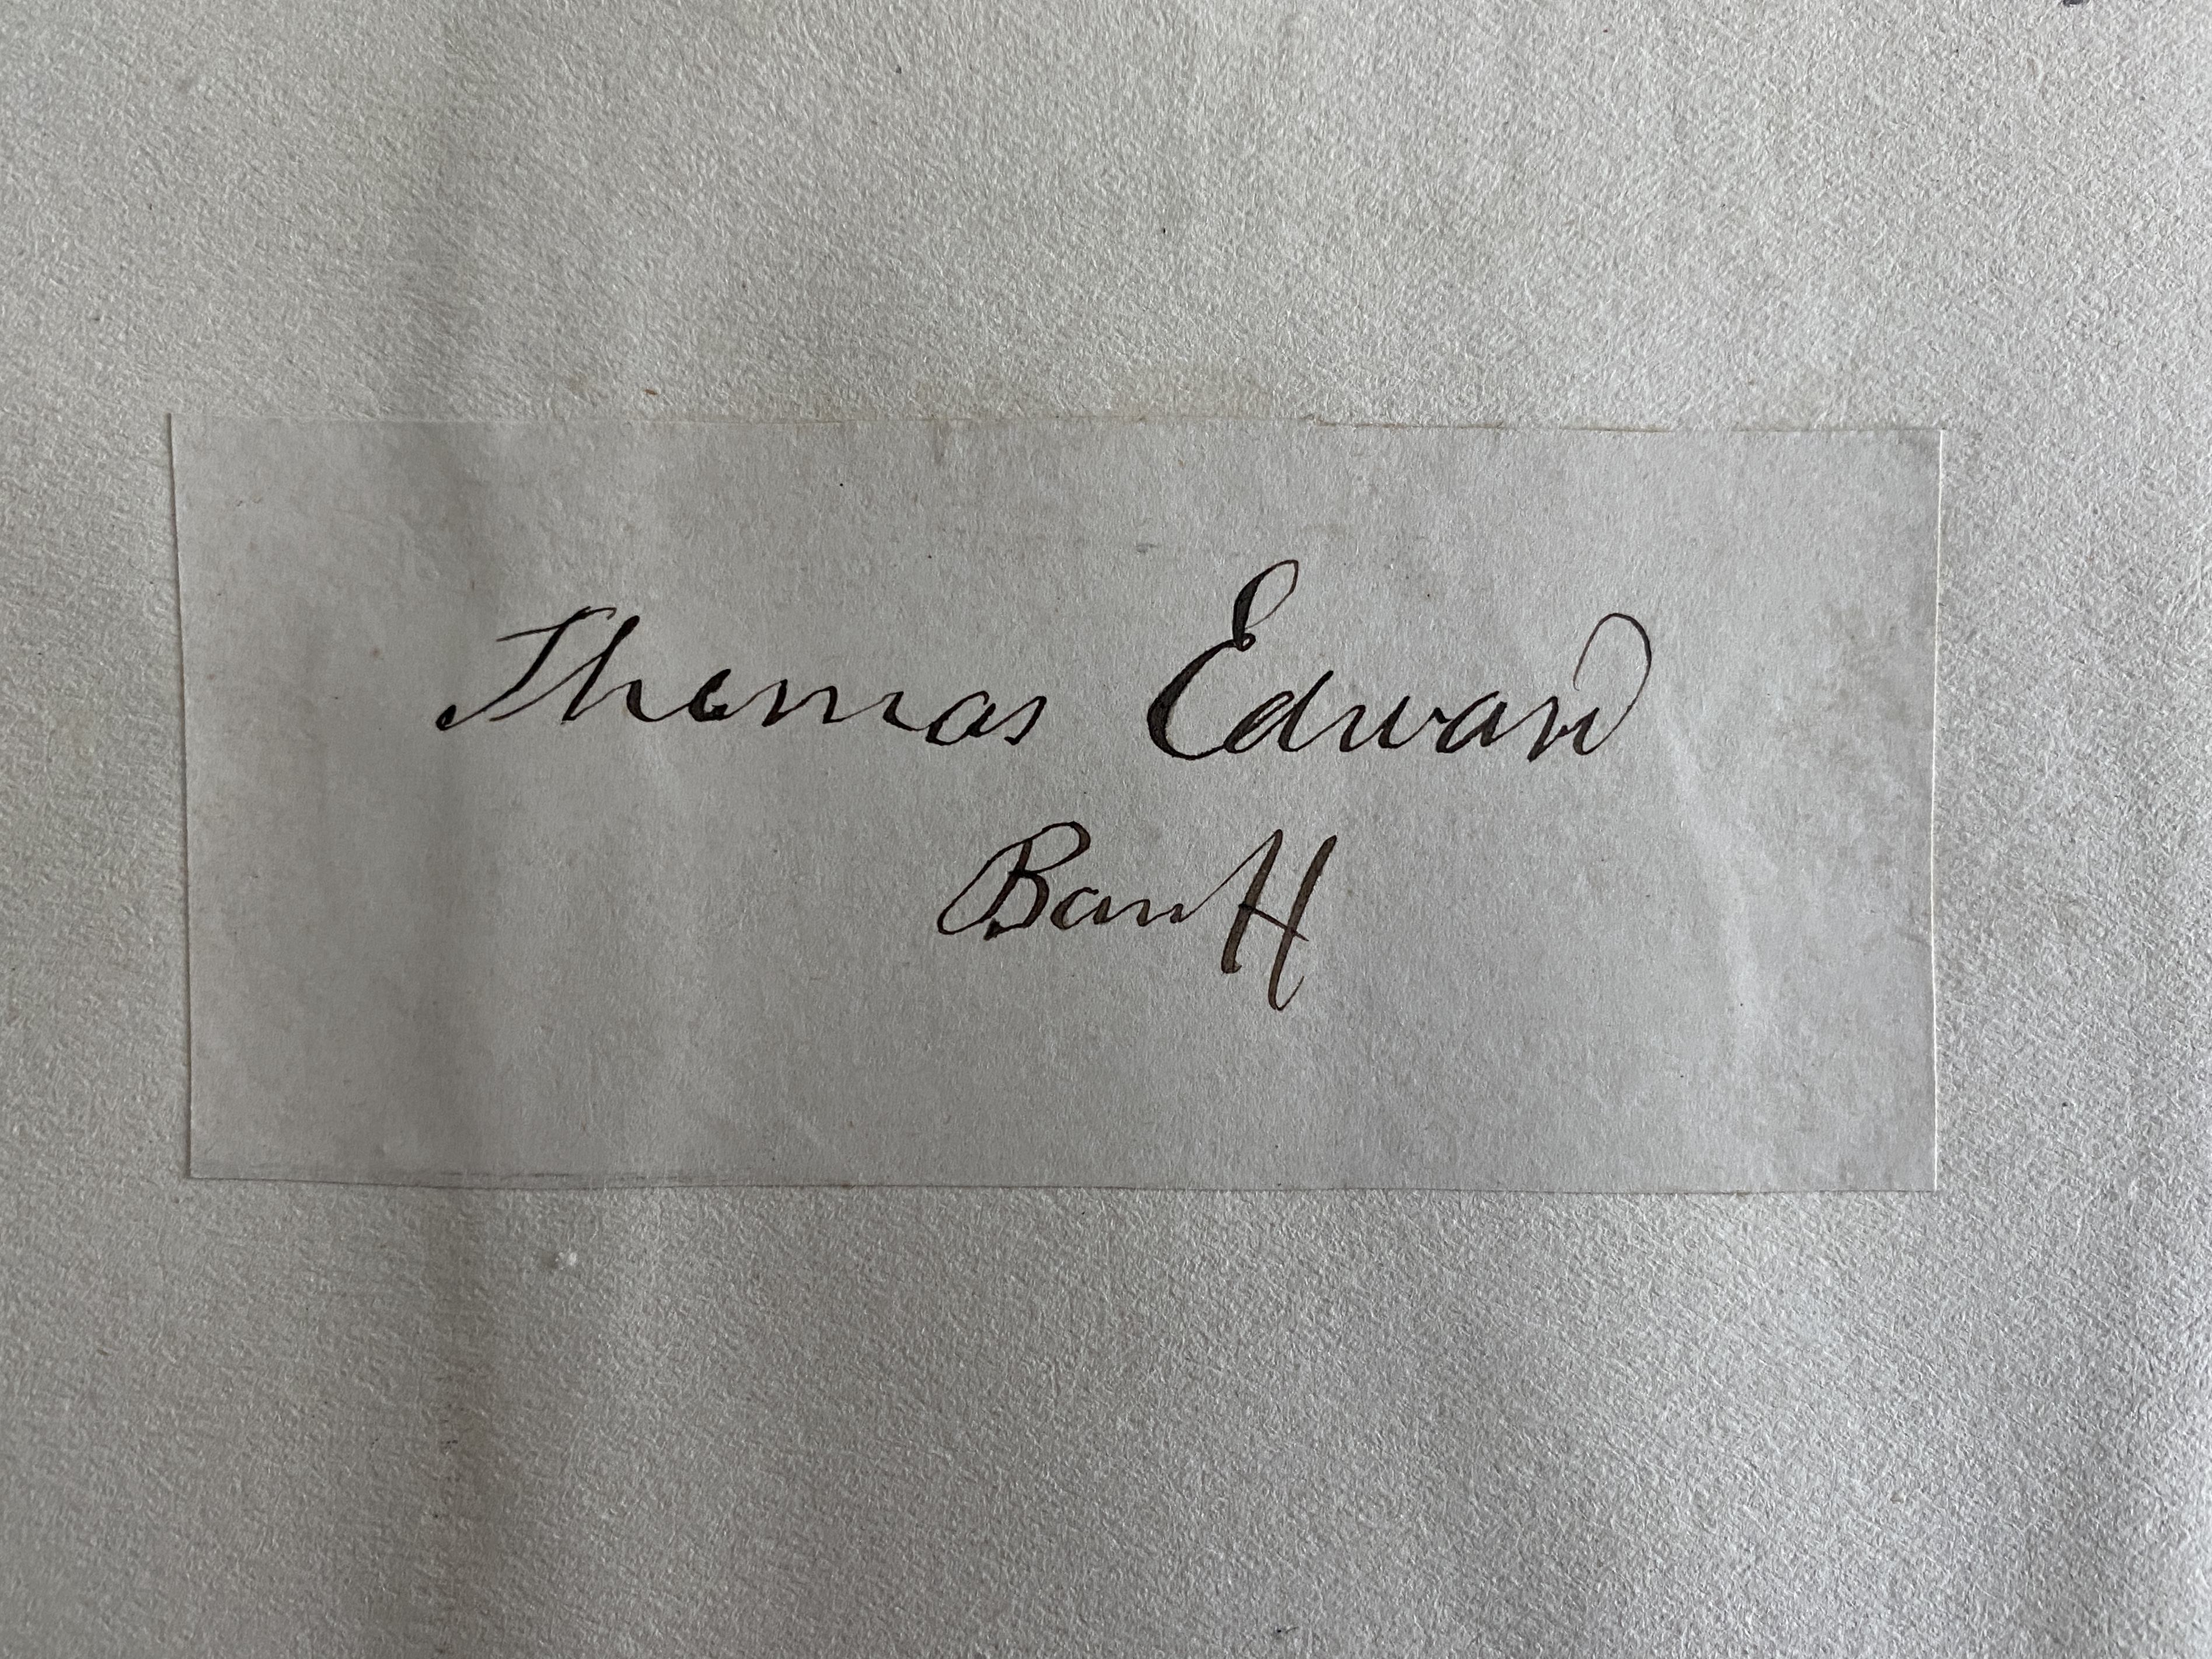 Thomas Edward
Banff